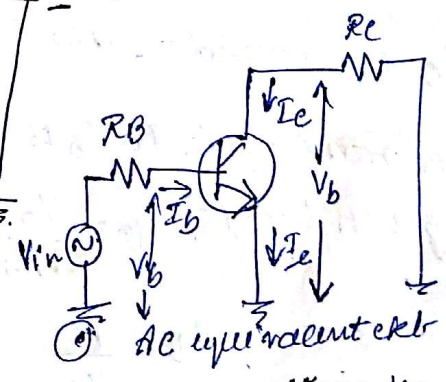 RC
RB
Ic
Vb
Ib
Vin
Vb
Ie
AC equivalent ckt